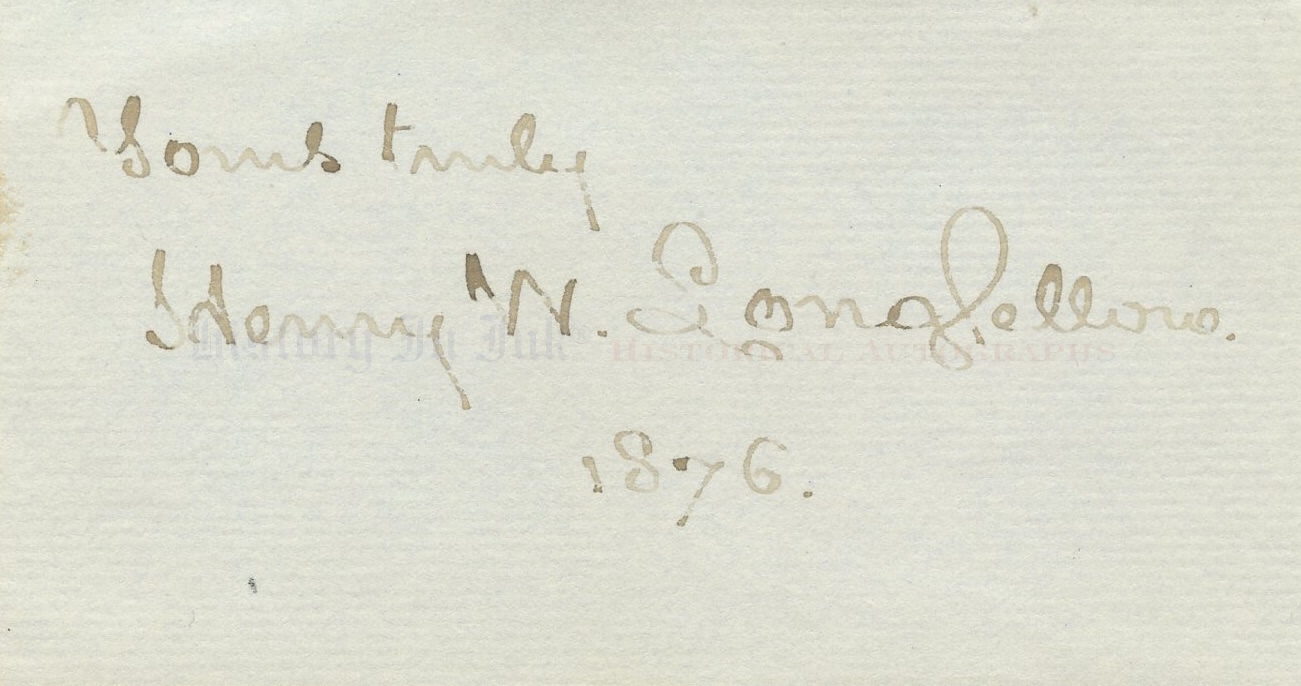 Yours truly
Henry W. Longfellow.
History In Ink® HISTORICAL AUTOGRAPHS
1876.